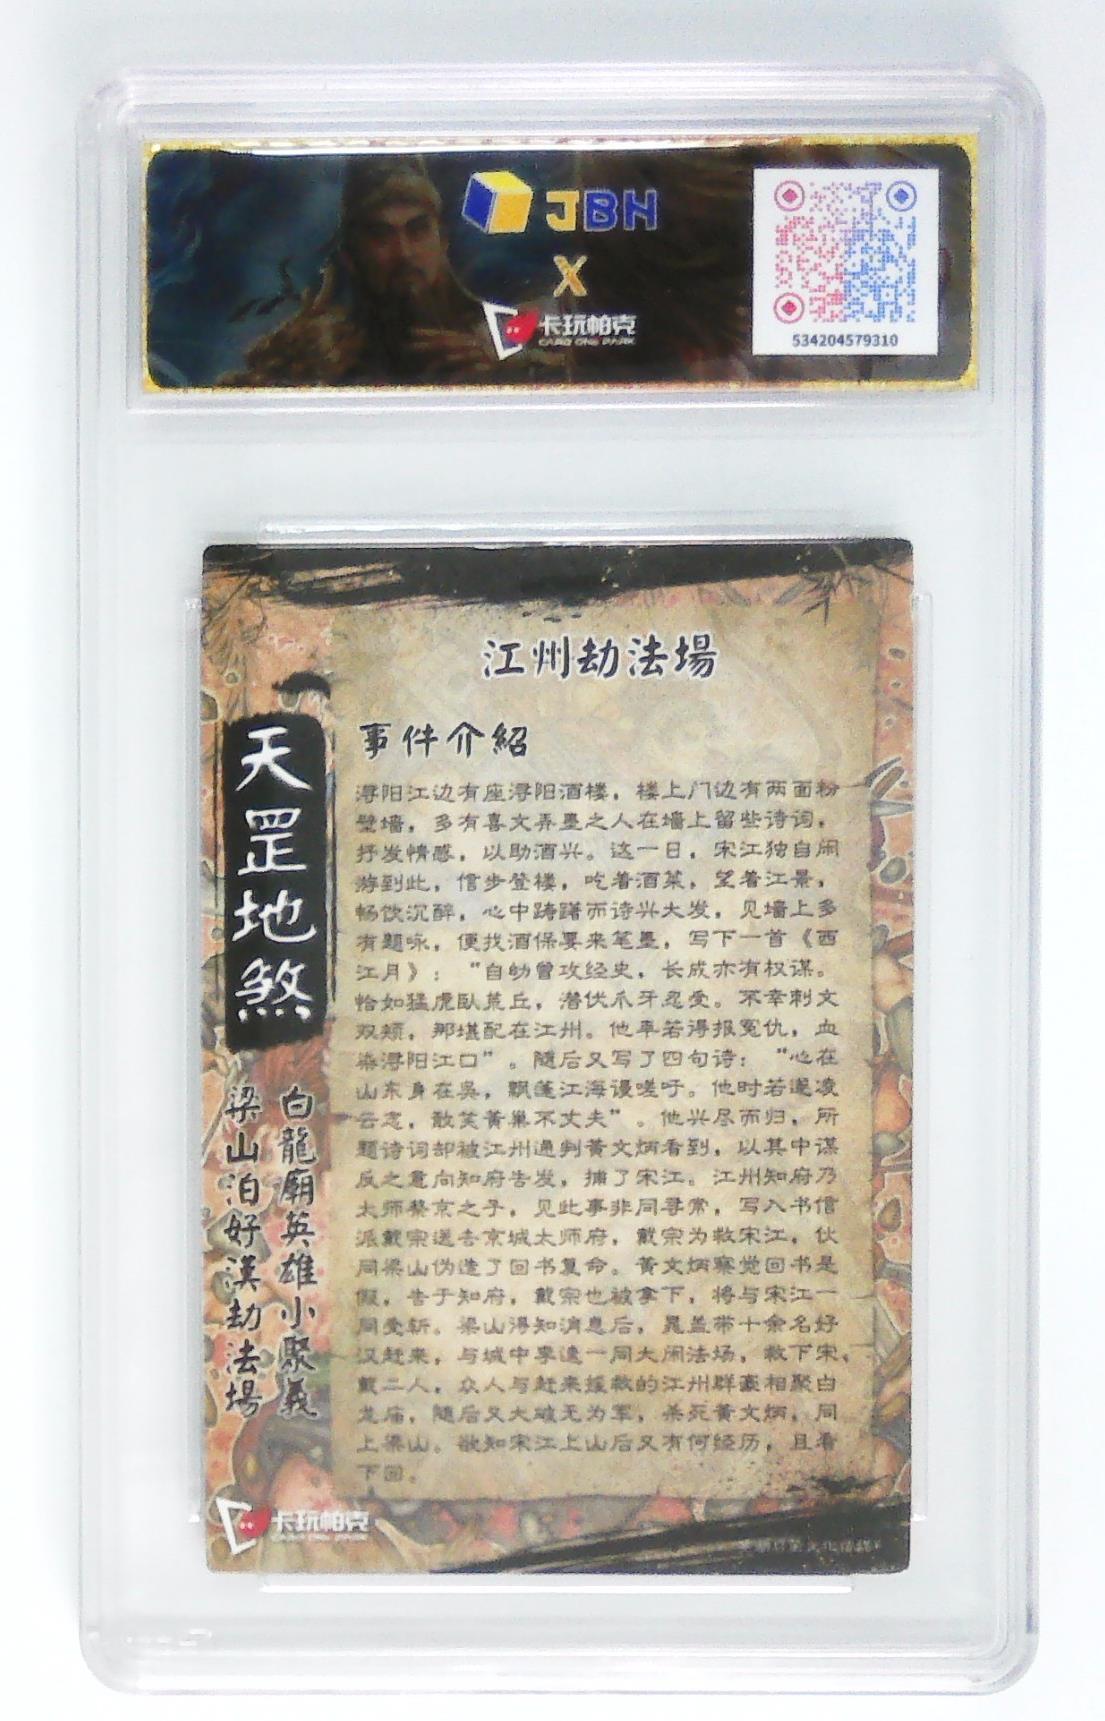 JBH
X
卡玩帕克
CARD ONE PARK
534204579310
江州劫法場
事件介紹
浔阳江边有座浔阳酒楼，楼上门边有两面粉
壁墙，多有喜文弄墨之人在墙上留些诗词，
抒发情感，以助酒兴。这一日，宋江独自闲
游到此，信步登楼，吃着酒菜，望着江景，
畅饮沉醉，心中踌躇而诗兴大发，见墙上多
有题咏，便找酒保要来笔墨，写下一首《西
江月》：“自幼曾攻经史，长成亦有权谋。
恰如猛虎卧荒丘，潜伏爪牙忍受。不幸刺文
双颊，那堪配在江州。他年若得报冤仇，血
染浔阳江口”。随后又写了四句诗：“心在
山东身在吴，飘蓬江海谩嗟吁。他时若遂凌
云志，敢笑黄巢不丈夫”。他兴尽而归，所
题诗词却被江州通判黄文炳看到，以其中谋
反之意向知府告发，捕了宋江。江州知府乃
太师蔡京之子，见此事非同寻常，写入书信
派戴宗送去京城太师府，戴宗为救宋江，伙
同梁山伪造了回书复命。黄文炳察觉回书是
假，告于知府，戴宗也被拿下，将与宋江一
同受斩。梁山得知消息后，晁盖带十余名好
汉赶来，与城中李逵一同大闹法场，救下宋、
戴二人，众人与赶来援救的江州群豪相聚白
龙庙，随后又大破无为军，杀死黄文炳，同
上梁山。欲知宋江上山后又有何经历，且看
下回。
天罡地煞
白龍廟英雄小聚義
梁山泊好漢劫法場
卡玩帕克
CARD ONE PARK